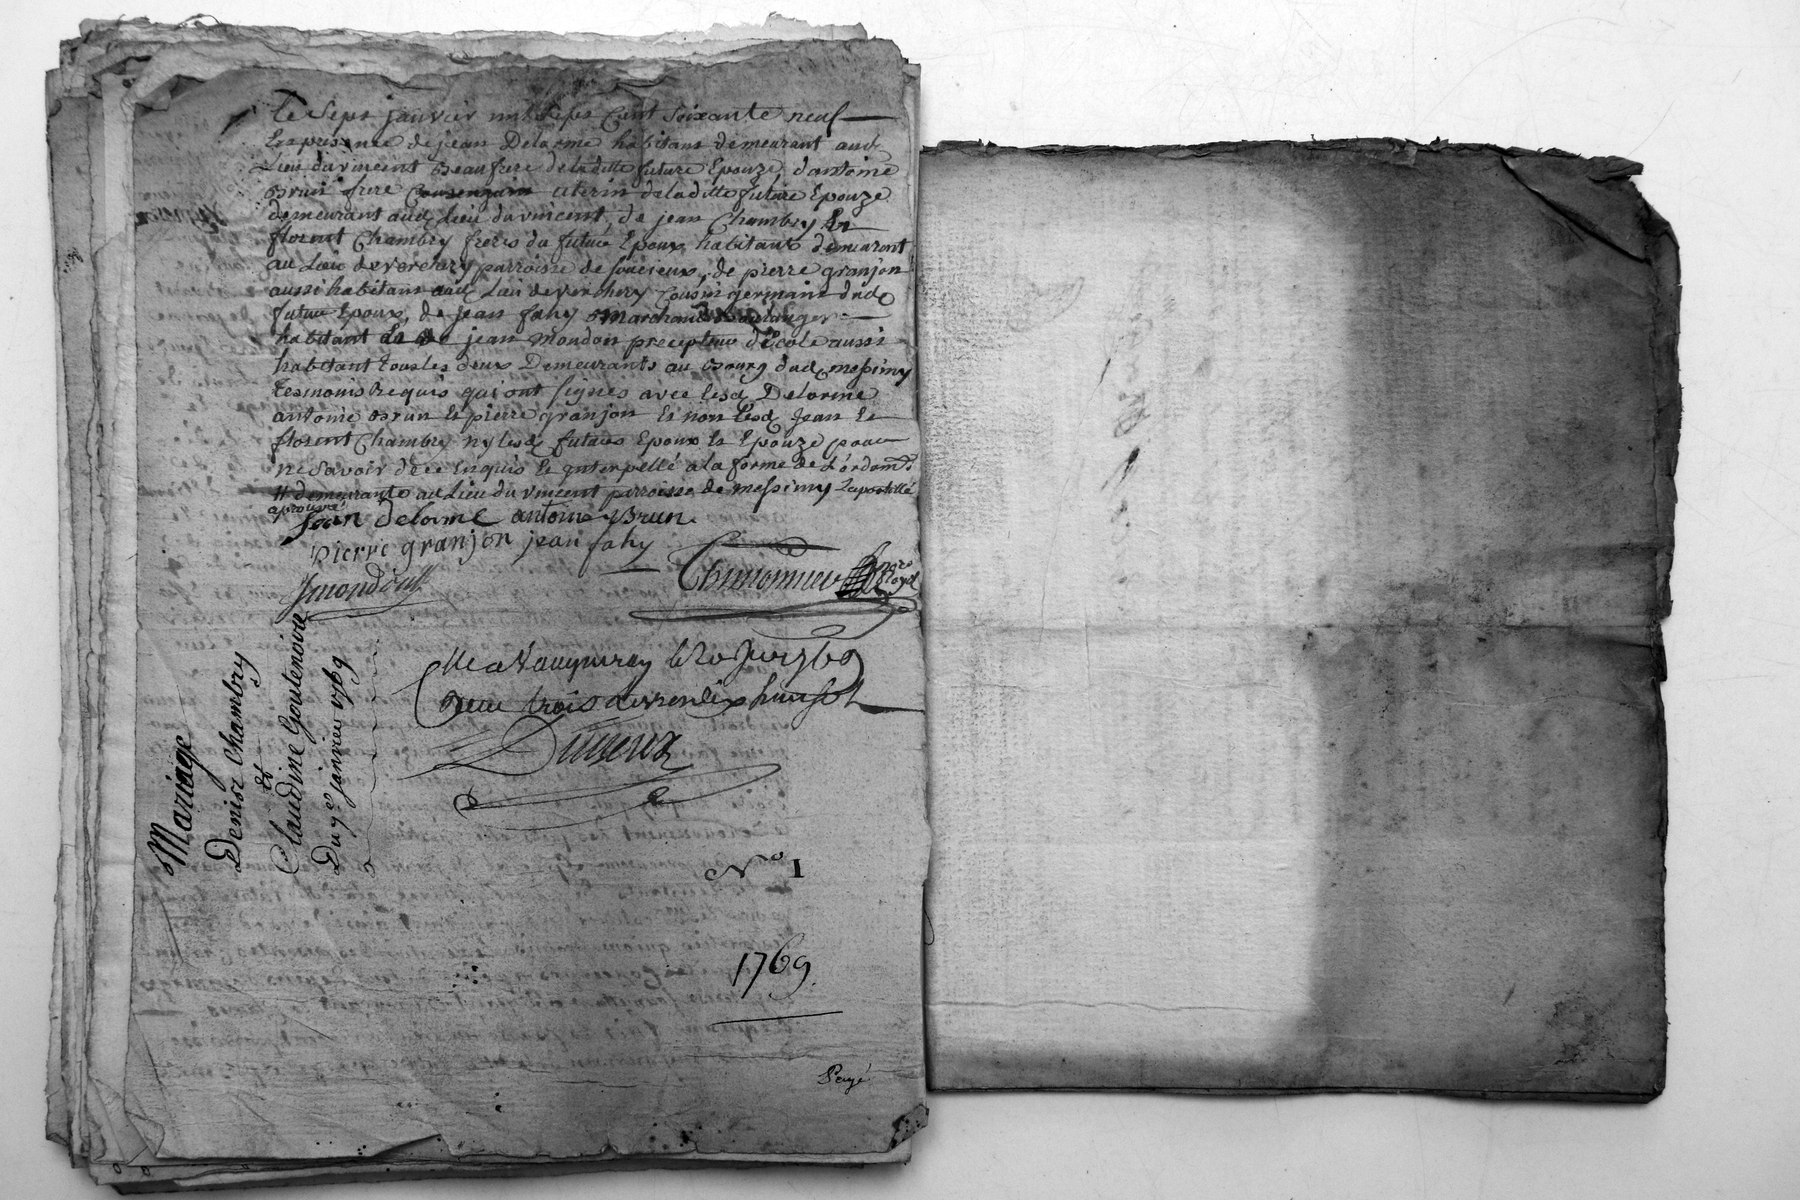 Le Sept janvier mil Sept Cent Soixante neuf
En presence de jean Delorme habitant demeurant aud
Lieu du vincent Beaufrere de la ditte future Epouze, d'antoine
Brun frere uterin de la ditte future Epouze
demeurant aud Lieu du vincent, de jean Chambry Et
florent Chambry freres du futur Epoux habitants demeurant
au Lieu de verchery parroisse de soucieux, de pierre granjon
aussi habitant aud Lieu de verchery Cousin germain dud
futur Epoux, de jean fahy Marchand Boulanger
habitant Et de jean Mondon precepteur d'Ecole aussi
habitant tous les deux Demeurants au Bourg dud messimy
tesmoins Requis qui ont signés avec lesd Delorme
antoine Brun Et pierre granjon Et non lesd Jean Et
florent Chambry ny lesd futurs Epoux Et Epouze pour
ne Savoir de ce Enquis Et interpellé a la forme de L'ordon.
# demeurante au Lieu du vincent parroisse de messimy L'apostille
aprouvé
jean delorme antoine Brun
pierre granjon jean fahy
Jmondon
nore Royal
Cle a Vaugneray le 20 Janv 1769
Reçu trois livres dix huit sols
Mariage
Denis Chambry
&
Claudine Goutenoire
Du 7e janvier 1769
No 1
1769
Payé